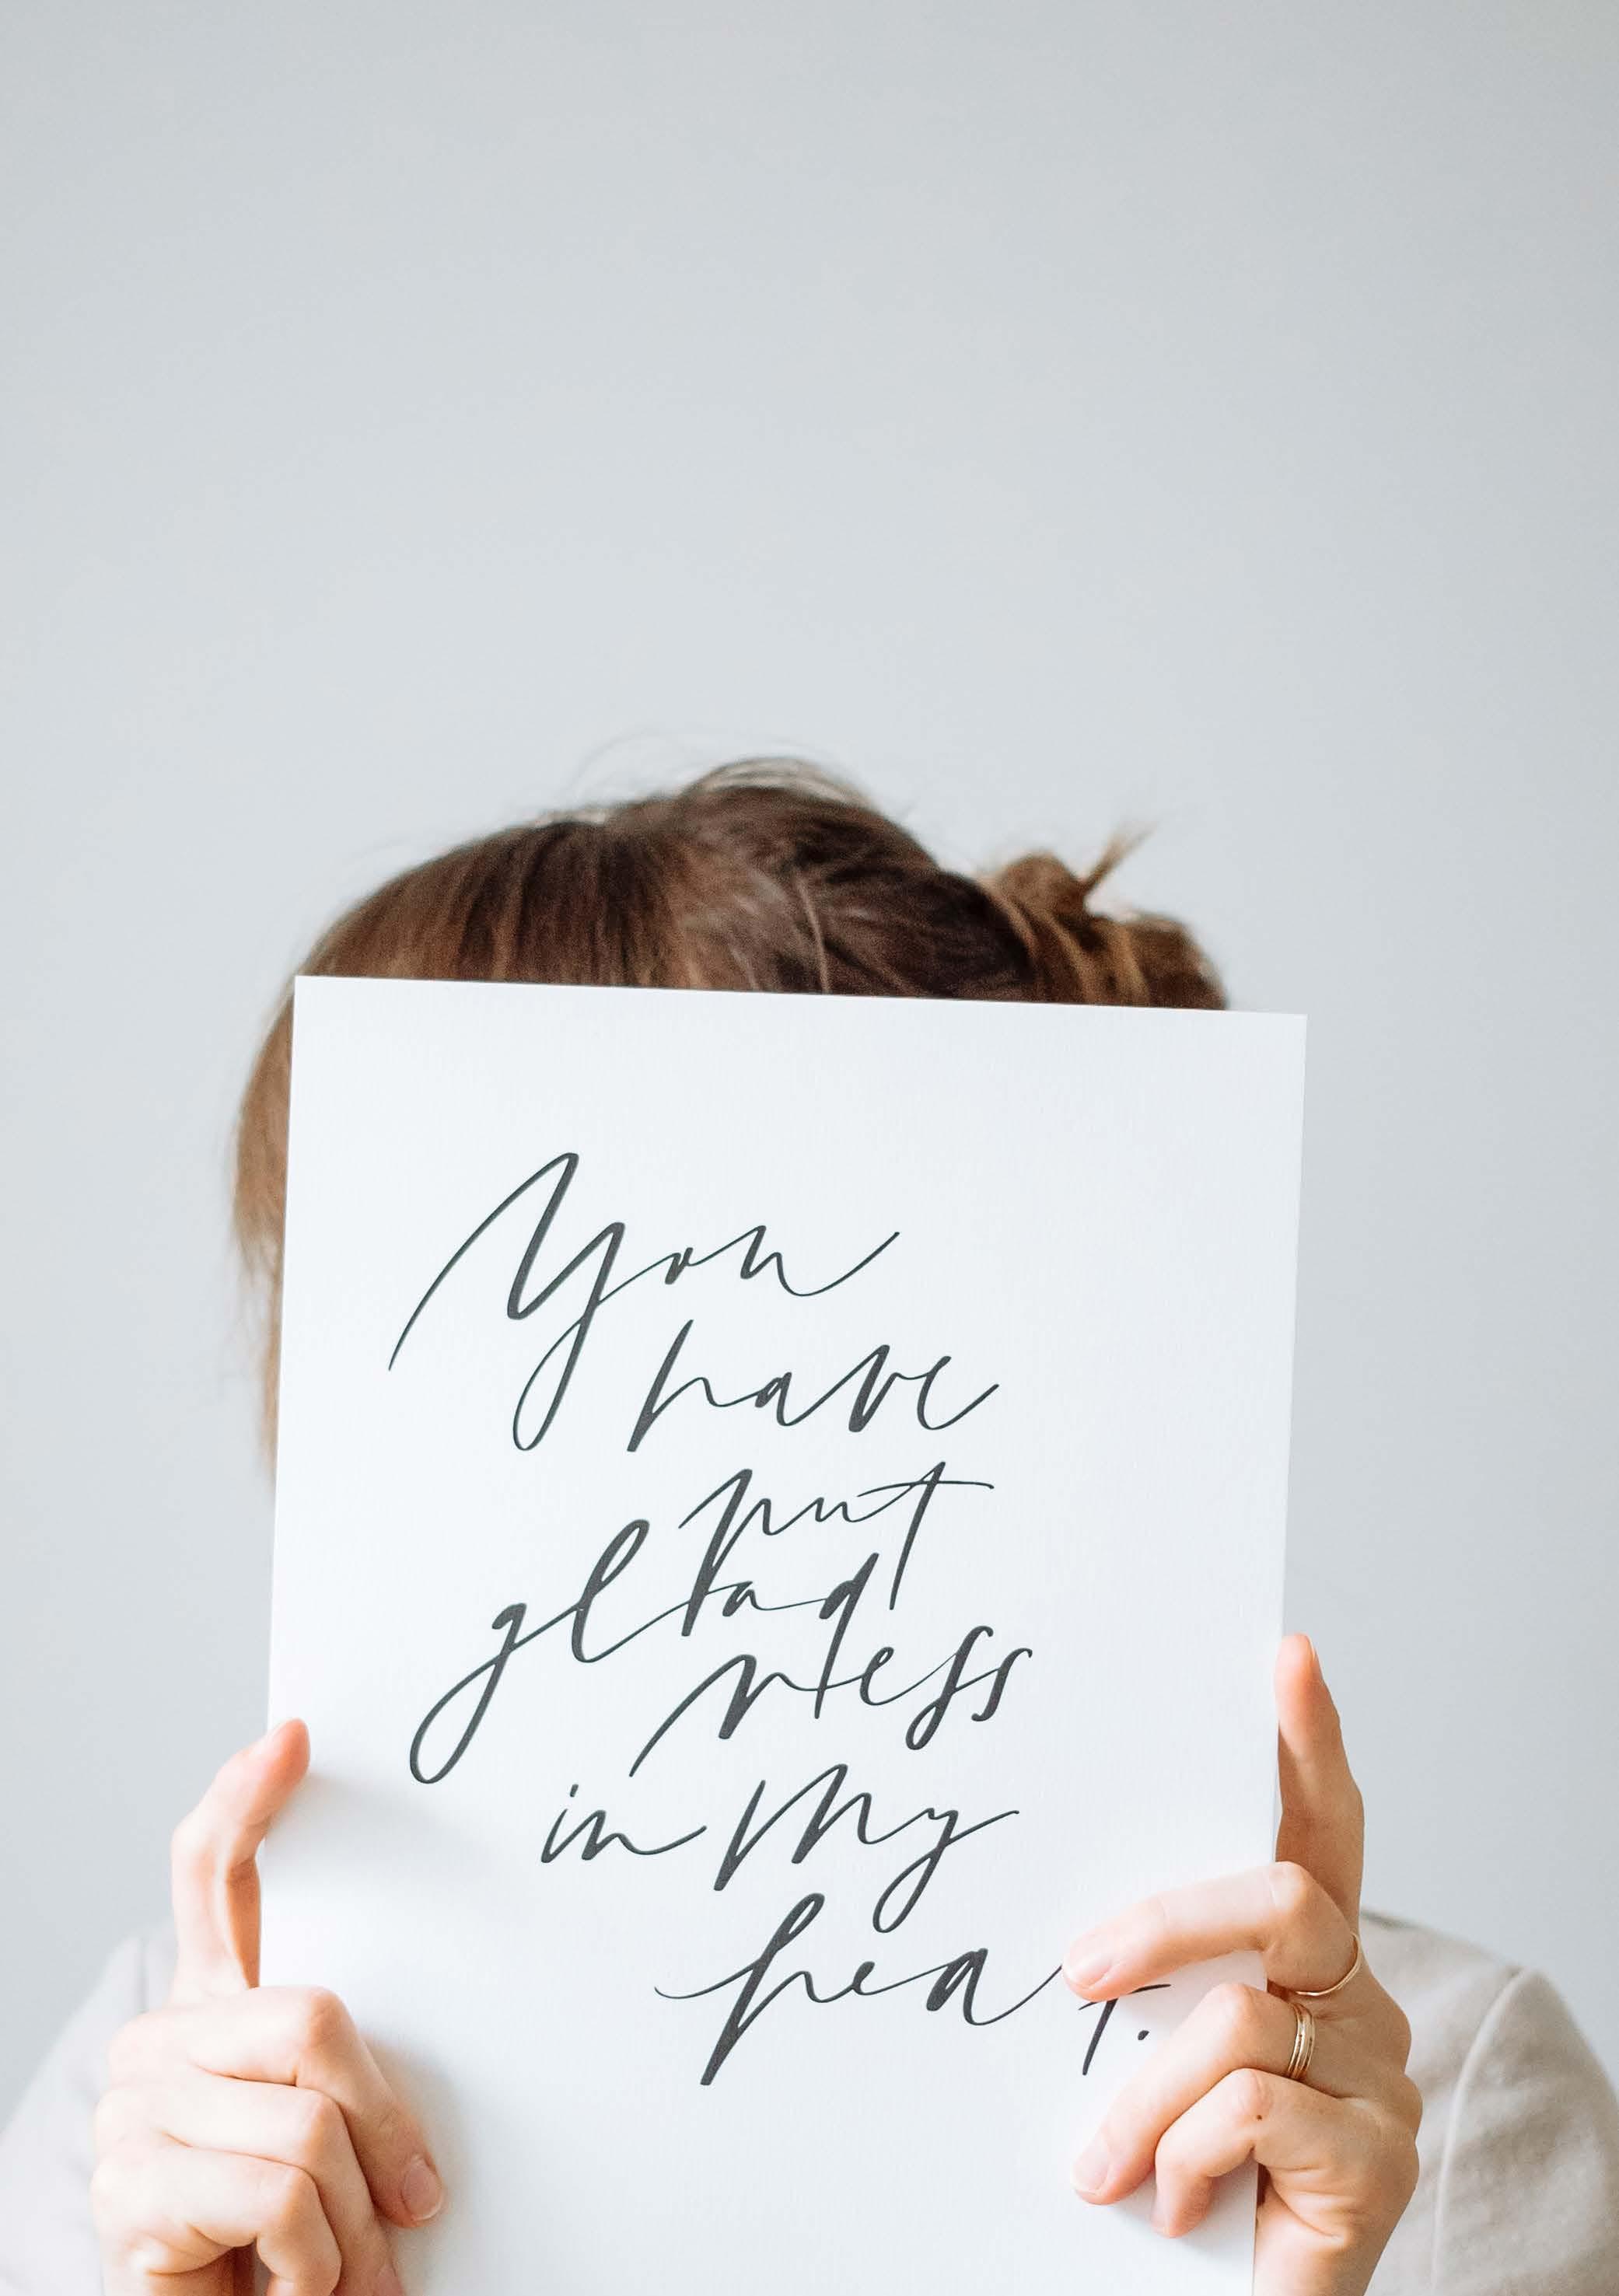 You
have
put
glad
ness
in my
hea t.